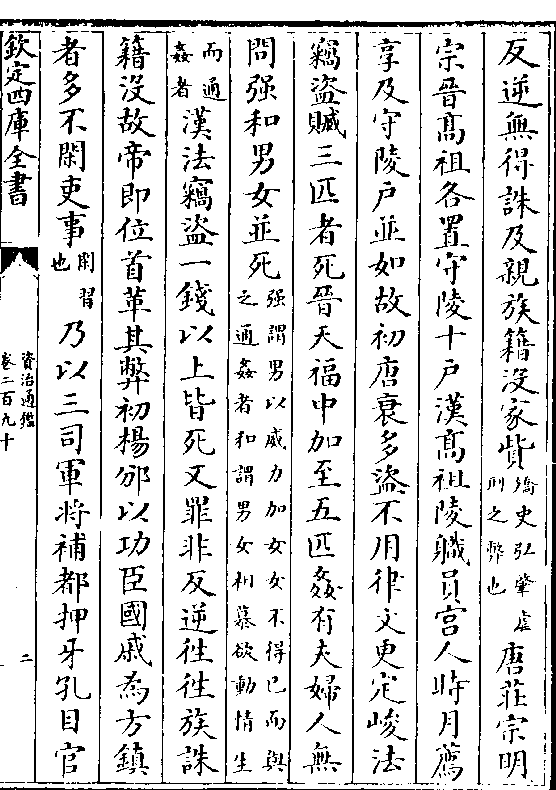 反逆無得誅及親族籍没家貲矯史弘肇虐刑之弊也唐莊宗明
宗晉髙祖各置守陵十戸漢髙祖陵職員宮人時月薦
享及守陵戸並如故初唐衰多盜不用律文更定峻法
竊盜贓三匹者死晉天福中加至五匹姦有夫婦人無
問强和男女並死强謂男以威力加女女不得已而與之通姦者和謂男女相慕欲動情生
而通姦者漢法竊盜一錢以上皆死又罪非反逆往往族誅
籍没故帝即位首革其弊初楊邠以功臣國戚為方鎮
者多不閑吏事閑習也乃以三司軍將補都押牙孔目官
欽定四庫全書
資治通鑑
卷二百九十
二